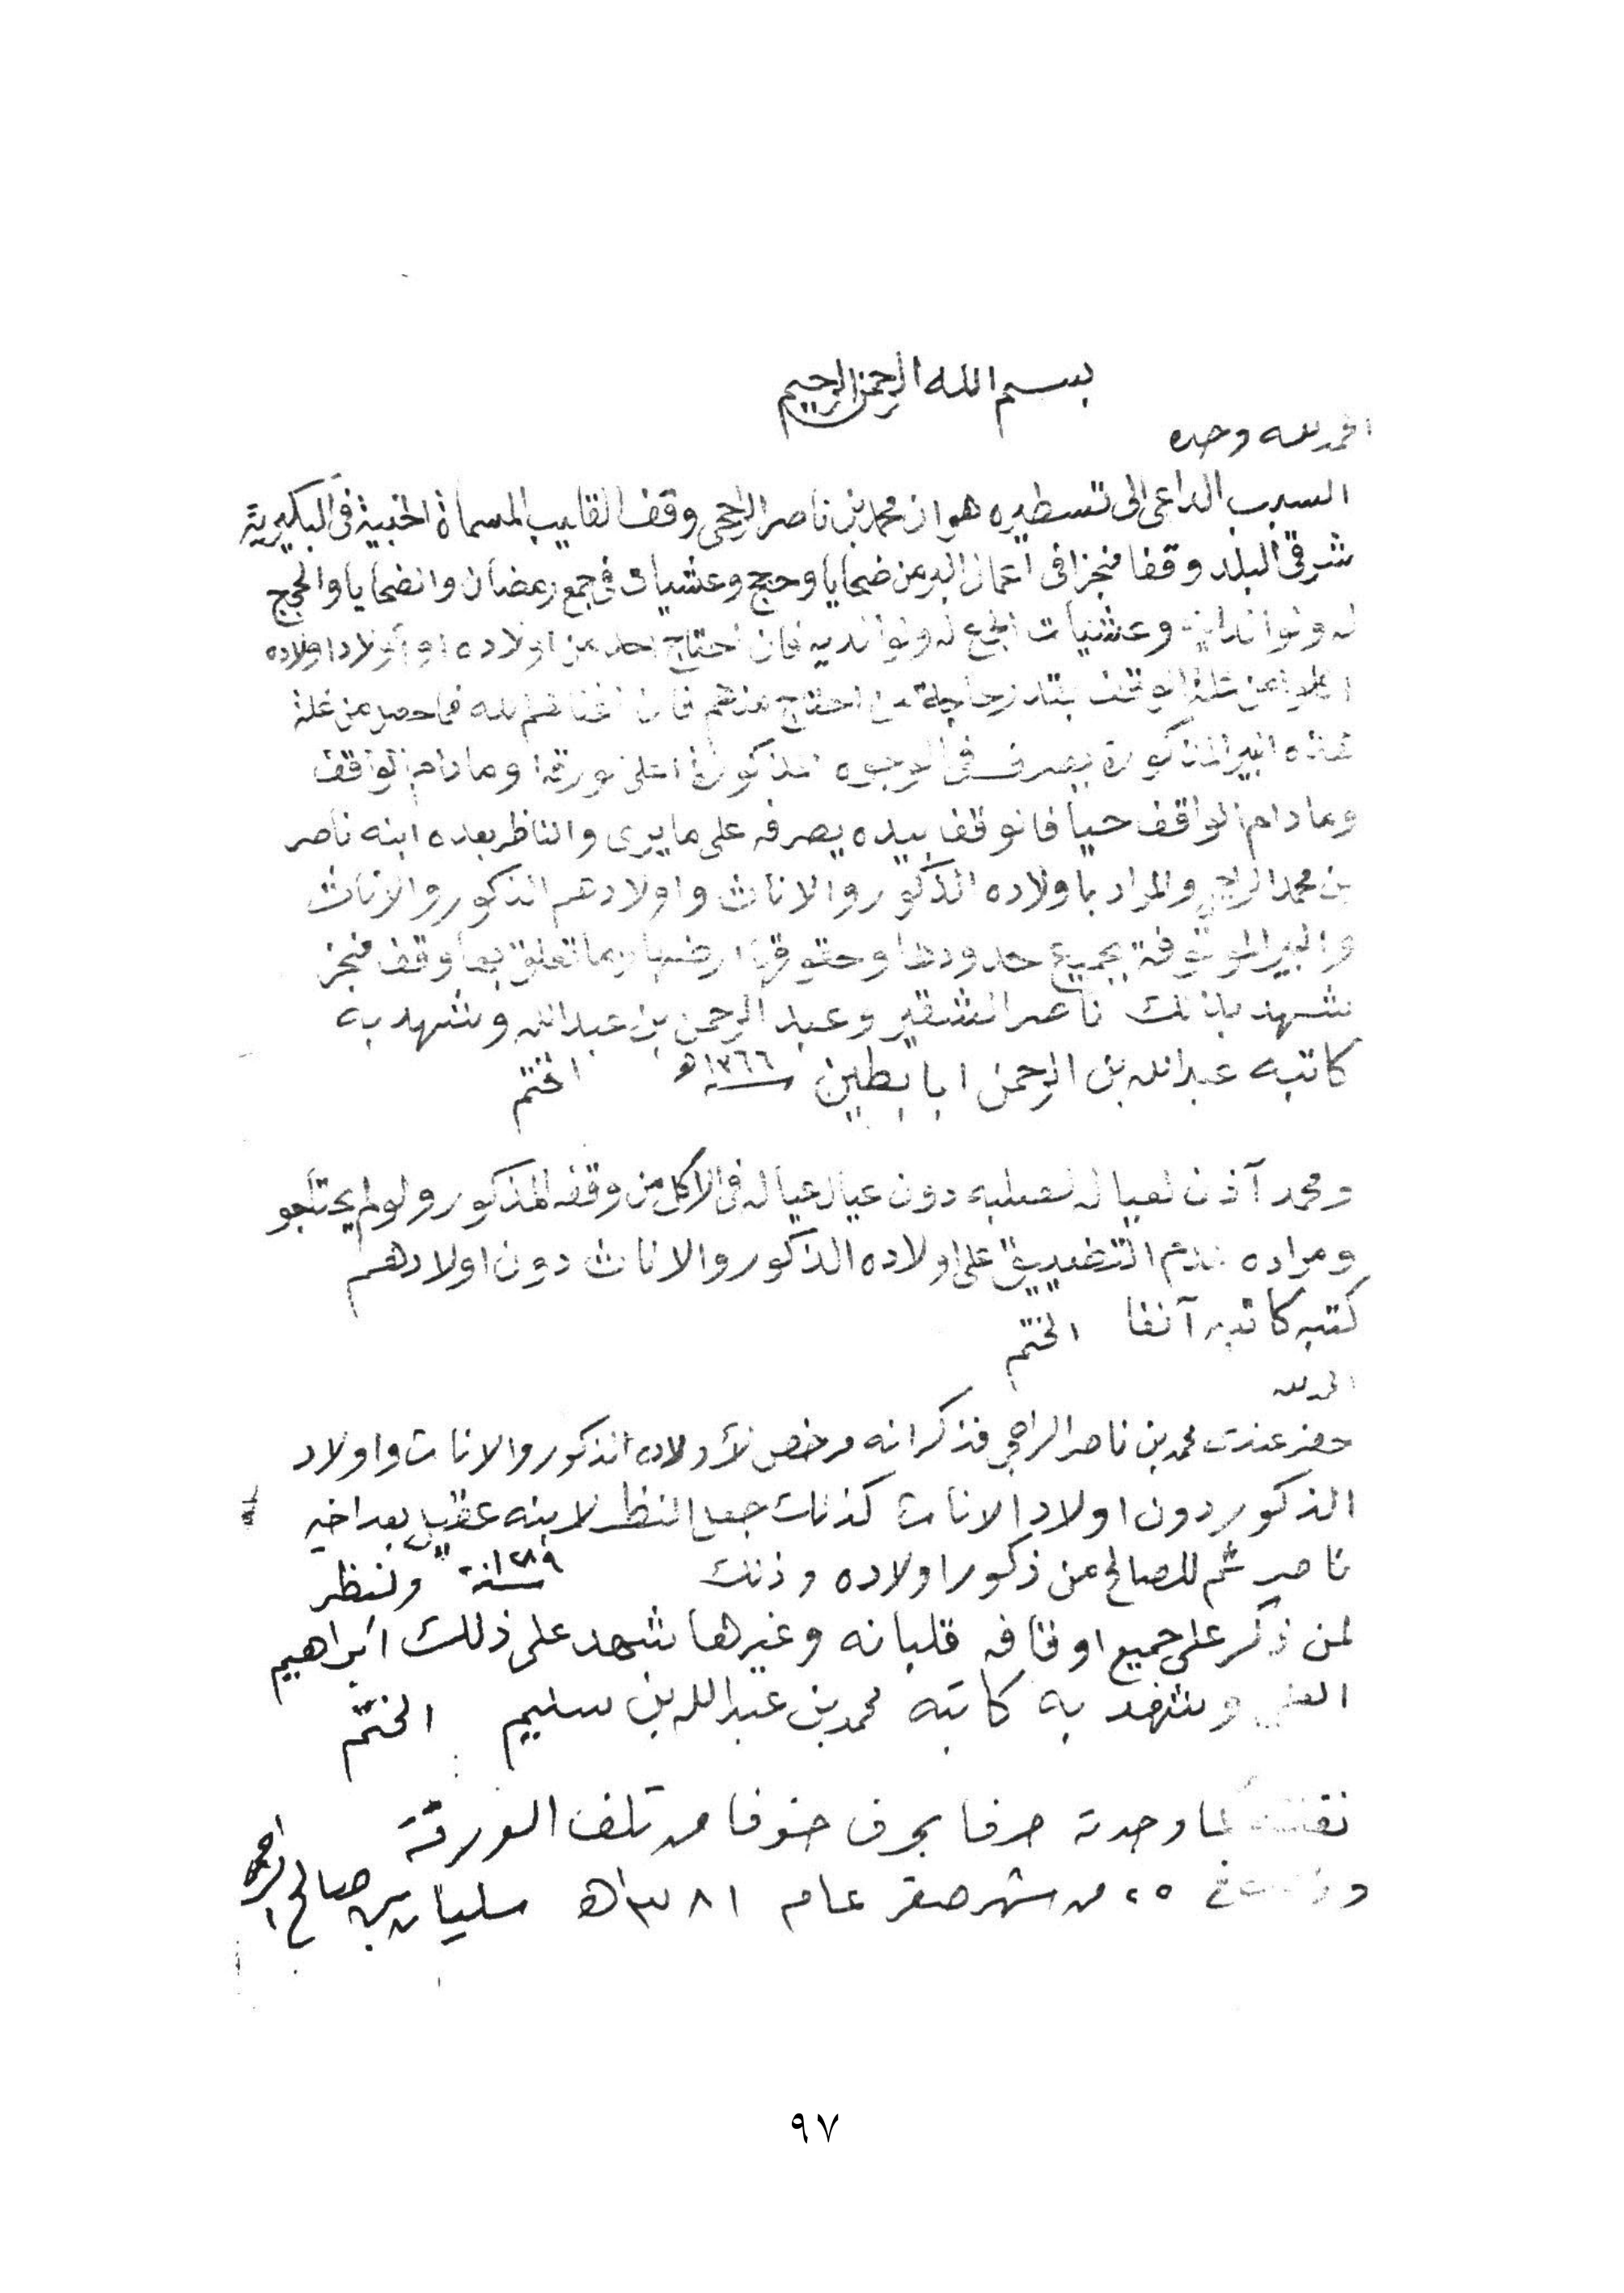 بسم الله الرحمن الرحيم
الحمد لله وحده
السبب الداعي الى تسطيره هو ان محمد بن ناصر الراجحي وقف القليب المسماة الخبيبية في البكيرية
شرقي البلد وقفا منجزا في اعمال البر من ضحايا وحجج وعشيات في جمع رمضان والضحايا والحجج
له ولوالديه وعشيات الجمع له ولوالديه فان احتاج احد من اولاده او اولاد اولاده
اكلوا من غلة الوقف بقدر حاجة من احتاج منهم فان اغناهم الله فما حصل من غلة
هذه البير المذكورة يصرف في الوجوه المذكورة اعلى الورقة وما دام الواقف
وما دام الواقف حيا فالوقف بيده يصرفه على ما يرى والناظر بعده ابنه ناصر
بن محمد الراجحي والمراد باولاده الذكور والاناث واولادهم الذكور والاناث
والبير الموقوفة بجميع حدودها وحقوقها ارضها وما تعلق بها وقف منجز
شهد بذلك ناصر الشقير وعبد الرحمن بن عبدالله وشهد به
كاتبه عبدالله بن الرحمن ابا بطين سنة ١٢٦٦ه الختم
ومحمد آذن لعياله لصلبه دون عيال عياله في الاكل من وقفه المذكور ولو لم يحتاجو
ومراده عدم التضييق على اولاده الذكور والاناث دون اولادهم
كتبه كاتبه آنفا الختم
الحمد لله
حضر عندي محمد بن ناصر الراجحي فذكر انه مرخص لأولاده الذكور والاناث واولاد
الذكور دون اولاد الاناث كذلك جعل النظر لابنه عقيل بعد اخيه
ناصر ثم للصالح من ذكور اولاده وذلك سنة ١٢٨٩ والنظر
لمن ذكر على جميع اوقافه قلبانه وغيرها شهد على ذلك ابراهيم
وشهد به كاتبه محمد بن عبدالله بن سليم الختم
نقلته كما وجدته حرفا بحرف خوفا من تلف الورقة
وذلك في ٢٥ من شهر صفر عام ١٣٨١ه سليمان بن صالح الراجحي
٩٧